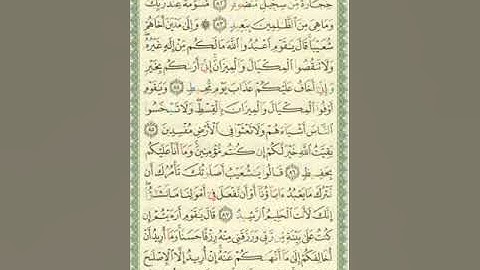 حِجَارَةً مِّن سِجِّيلٍ مَّنضُودٍ ٨٢ مُّسَوَّمَةً عِندَ رَبِّكَ
وَمَا هِيَ مِنَ ٱلظَّٰلِمِينَ بِبَعِيدٍ ٨٣ ۞ وَإِلَىٰ مَدْيَنَ أَخَاهُمْ
شُعَيْبًا قَالَ يَٰقَوْمِ ٱعْبُدُوا۟ ٱللَّهَ مَا لَكُم مِّنْ إِلَٰهٍ غَيْرُهُۥ
وَلَا تَنقُصُوا۟ ٱلْمِكْيَالَ وَٱلْمِيزَانَ إِنِّىٓ أَرَىٰكُم بِخَيْرٍ
وَإِنِّىٓ أَخَافُ عَلَيْكُمْ عَذَابَ يَوْمٍ مُّحِيطٍ ٨٤ وَيَٰقَوْمِ
أَوْفُوا۟ ٱلْمِكْيَالَ وَٱلْمِيزَانَ بِٱلْقِسْطِ وَلَا تَبْخَسُوا۟
ٱلنَّاسَ أَشْيَآءَهُمْ وَلَا تَعْثَوْا۟ فِى ٱلْأَرْضِ مُفْسِدِينَ ٨٥
بَقِيَّتُ ٱللَّهِ خَيْرٌ لَّكُمْ إِن كُنتُم مُّؤْمِنِينَ وَمَآ أَنَا۠ عَلَيْكُم
بِحَفِيظٍ ٨٦ قَالُوا۟ يَٰشُعَيْبُ أَصَلَوٰتُكَ تَأْمُرُكَ أَن
نَّتْرُكَ مَا يَعْبُدُ ءَابَآؤُنَآ أَوْ أَن نَّفْعَلَ فِىٓ أَمْوَٰلِنَا مَا نَشَٰٓؤُا۟
إِنَّكَ لَأَنتَ ٱلْحَلِيمُ ٱلرَّشِيدُ ٨٧ قَالَ يَٰقَوْمِ أَرَءَيْتُمْ إِن
كُنتُ عَلَىٰ بَيِّنَةٍ مِّن رَّبِّى وَرَزَقَنِى مِنْهُ رِزْقًا حَسَنًا وَمَآ أُرِيدُ أَنْ
أُخَالِفَكُمْ إِلَىٰ مَآ أَنْهَىٰكُمْ عَنْهُ إِنْ أُرِيدُ إِلَّا ٱلْإِصْلَٰحَ